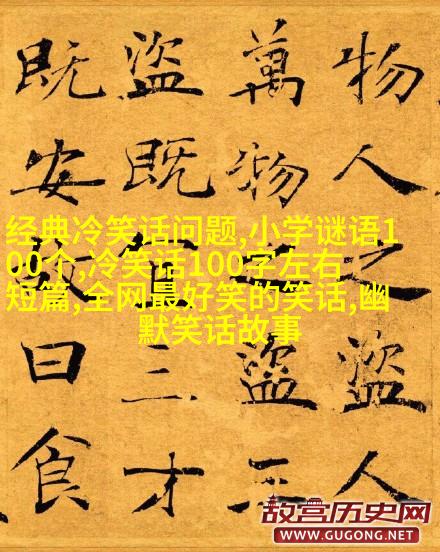 物人之盜人
萬物盜三
盜既三才
既安曰食
经典冷笑话问题,小学谜语1
00个,冷笑话100字左右
短篇,全网最好笑的笑话,幽
默笑话故事
故宫历史网
WWW.GUGONG.NET